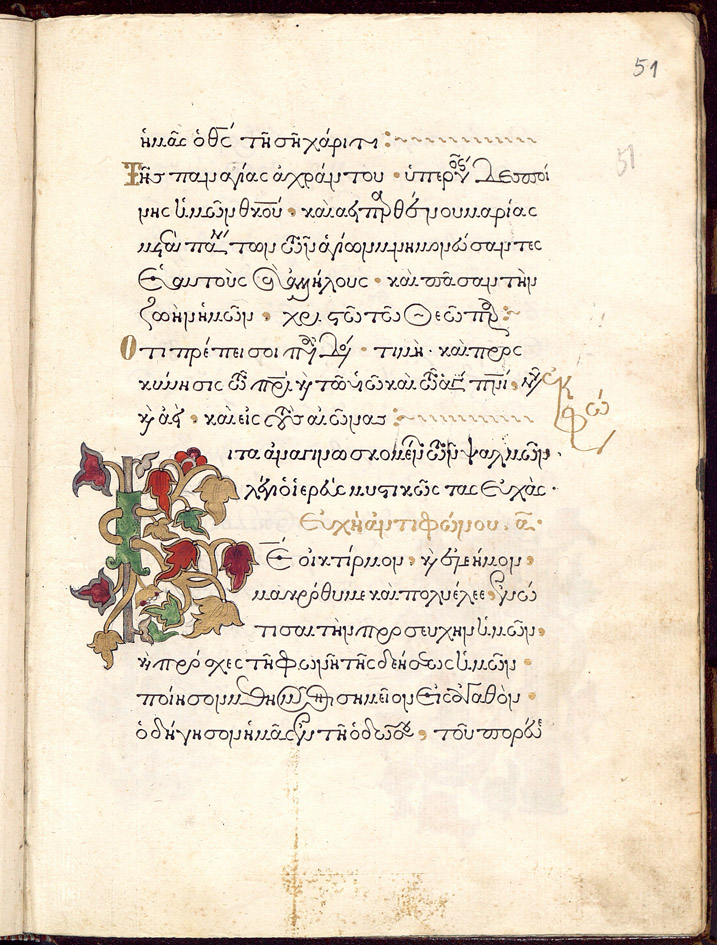 51
51
ἡμᾶς ὁ Θς τῇ σῇ χάριτι :~
Τῆς παναγίας ἀχράντου · ὑπερ δεσποί
νης ἡμῶν θκου · καὶ ἀειπρθένου μαρίας
μετὰ πάντων τῶν ἁγίων μνημονεύσαντες
ἑαυτοὺς καὶ ἀλλήλους · καὶ πᾶσαν τὴν
ζωὴν ἡμῶν · χριστῷ τῷ Θεῷ πρ :~
Ὅτι πρέπει σοι π δό · τιμὴ · καὶ προς
κύνησις τῷ πρὶ κ τῷ υἱῷ καὶ τῷ ἁγ πνι, νῦν
κ ἀεὶ · καὶ εἰς τοὺς αἰῶνας :~
ἐκφώ
ιτα ἀναγινωσκομένων τῶν ψαλμῶν ·
λέγει ὁ ἱερεὺς μυστικῶς τὰς εὐχάς ·
Εὐχὴ ἀντιφώνου · α ·
Κε οἰκτίρμον, κ ἐλεῆμον,
μακρόθυμε καὶ πολυέλεε, ἐνώ
τισαι τὴν προσευχὴν ἡμῶν,
κ πρόσχες τῇ φωνῇ τῆς δεήσεως ἡμῶν ·
ποίησον μεθ' ἡμῶν σημεῖον εἰς ἀγαθὸν ·
ὁδήγησον ἡμᾶς ἐν τῇ ὁδῷ σου, τοῦ πορεύ